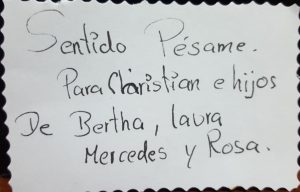 Sentido Pésame.
Para Christian e hijos
De Bertha, laura
Mercedes y Rosa.